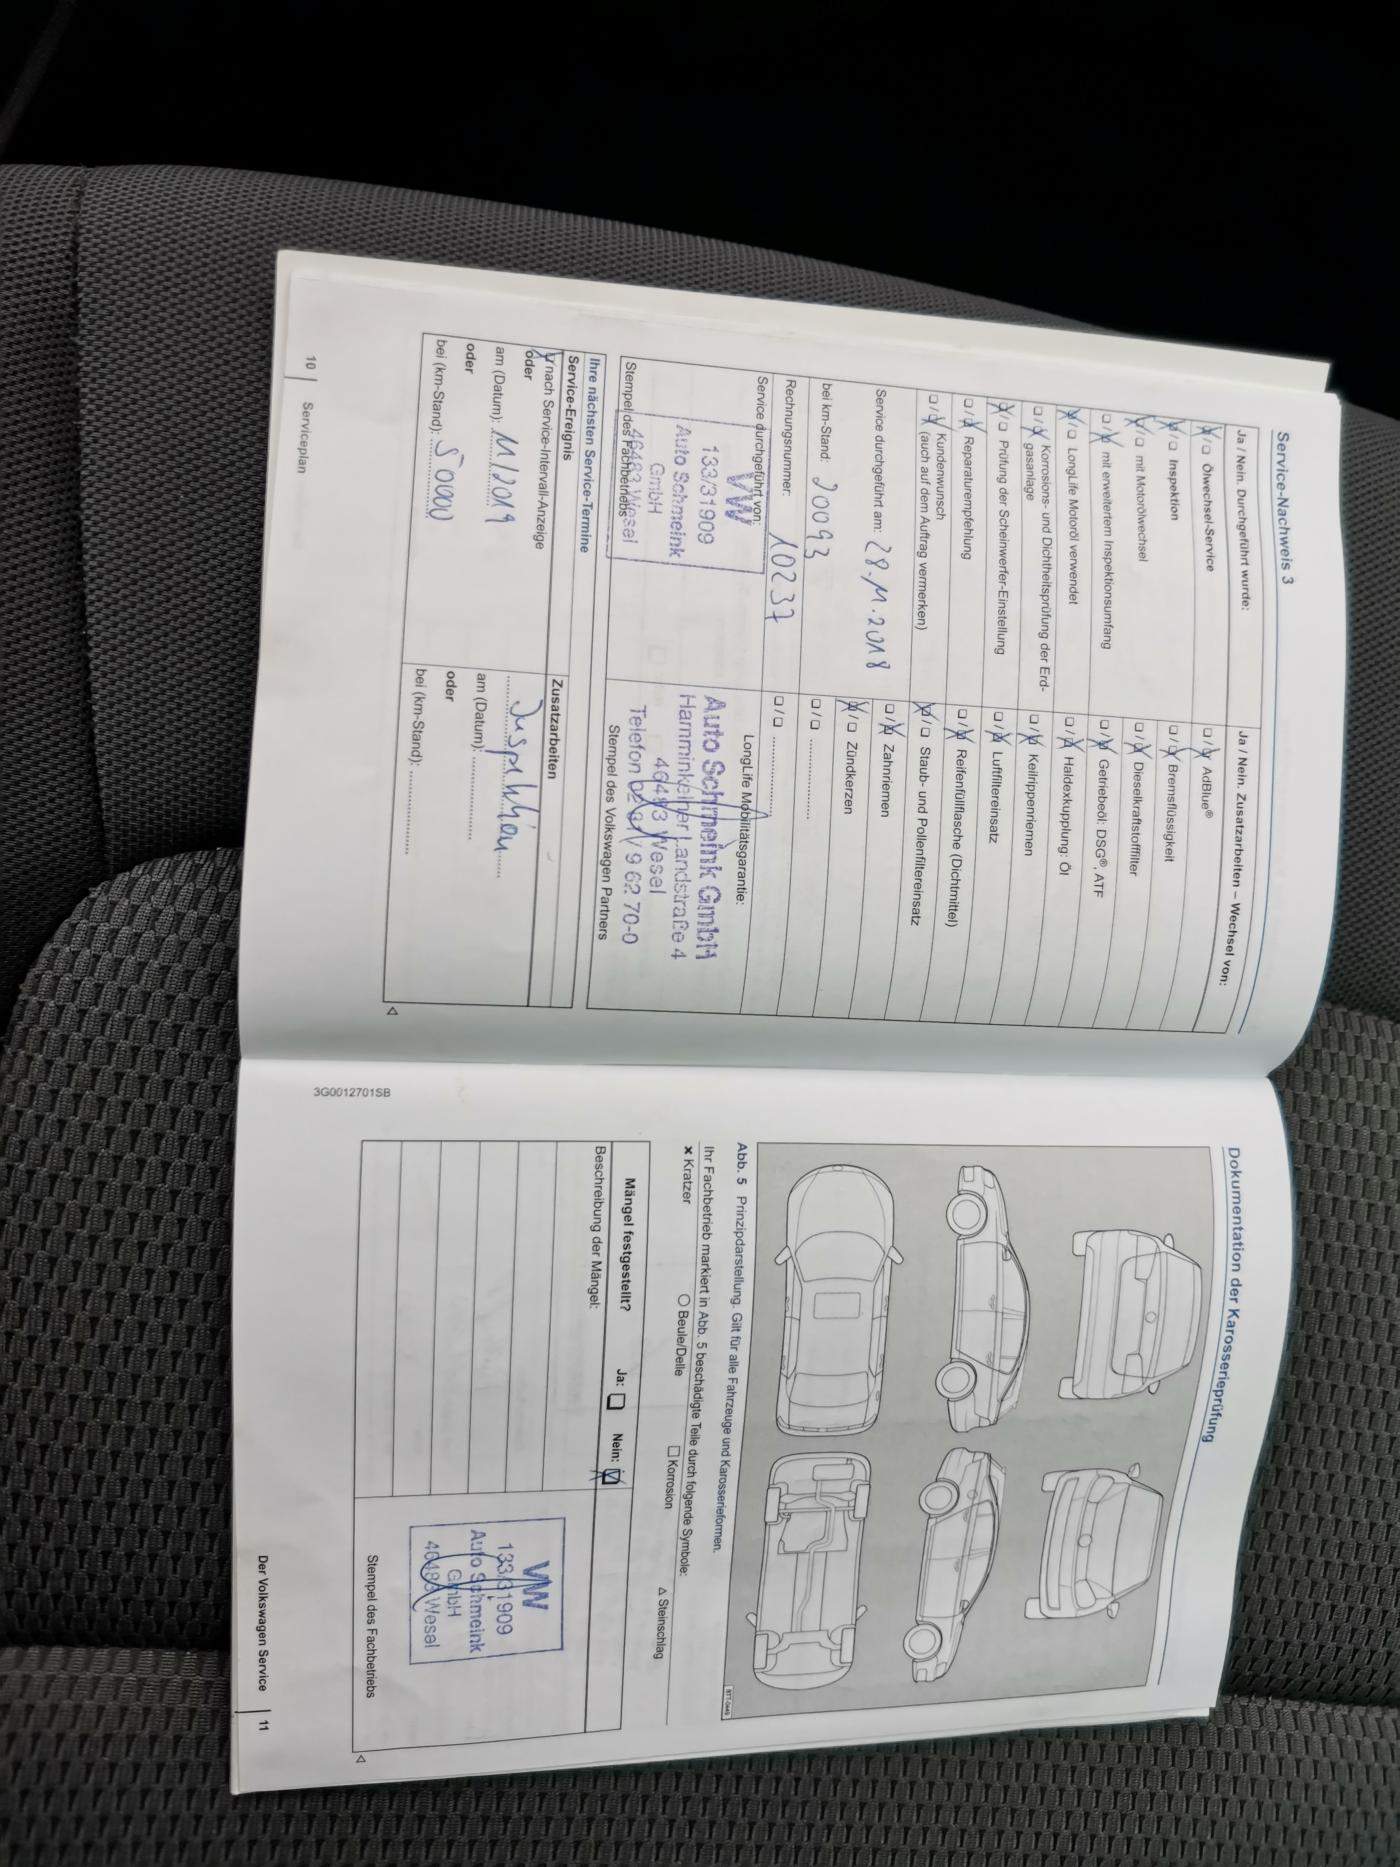 Service-Nachweis 3
Ja / Nein. Durchgeführt wurde:
Ölwechsel-Service
Inspektion
mit Motorölwechsel
mit erweitertem Inspektionsumfang
LongLife Motoröl verwendet
Korrosions- und Dichtheitsprüfung der Erd-
gasanlage
Prüfung der Scheinwerfer-Einstellung
Reparaturempfehlung
Kundenwunsch
(auch auf dem Auftrag vermerken)
Service durchgeführt am: 28.11.2018
bei km-Stand: 20093
Rechnungsnummer: 10237
Service durchgeführt von:
VW
133/31909
Auto Schmeink
GmbH
46483 Wesel
Stempel des Fachbetriebs
Ja / Nein. Zusatzarbeiten – Wechsel von:
AdBlue®
Bremsflüssigkeit
Dieselkraftstofffilter
Getriebeöl: DSG®, ATF
Haldexkupplung: Öl
Keilrippenriemen
Luftfiltereinsatz
Reifenfüllflasche (Dichtmittel)
Staub- und Pollenfiltereinsatz
Zahnriemen
Zündkerzen
LongLife Mobilitätsgarantie:
Auto Schmeink GmbH
Hamminkelner Landstraße 4
46483 Wesel
Telefon 0281 / 9 62 70-0
Stempel des Volkswagen Partners
Ihre nächsten Service-Termine
Service-Ereignis
nach Service-Intervall-Anzeige
oder
am (Datum): 11/2019
oder
bei (km-Stand): 50000
Zusatzarbeiten
Inspektion
am (Datum):
oder
bei (km-Stand):
10 Serviceplan
3G0012701SB
Dokumentation der Karosserieprüfung
BTT-0449
Abb. 5 Prinzipdarstellung. Gilt für alle Fahrzeuge und Karosserieformen.
Ihr Fachbetrieb markiert in Abb. 5 beschädigte Teile durch folgende Symbole:
× Kratzer ○ Beule/Delle □ Korrosion △ Steinschlag
Mängel festgestellt? Ja: Nein:
Beschreibung der Mängel:
VW
133/31909
Auto Schmeink
GmbH
46483 Wesel
Stempel des Fachbetriebs
Der Volkswagen Service 11